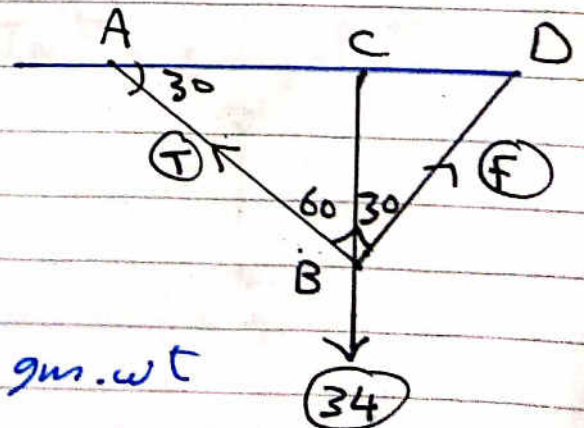 A C D
30
T F
60 30
B
gm.wt
34